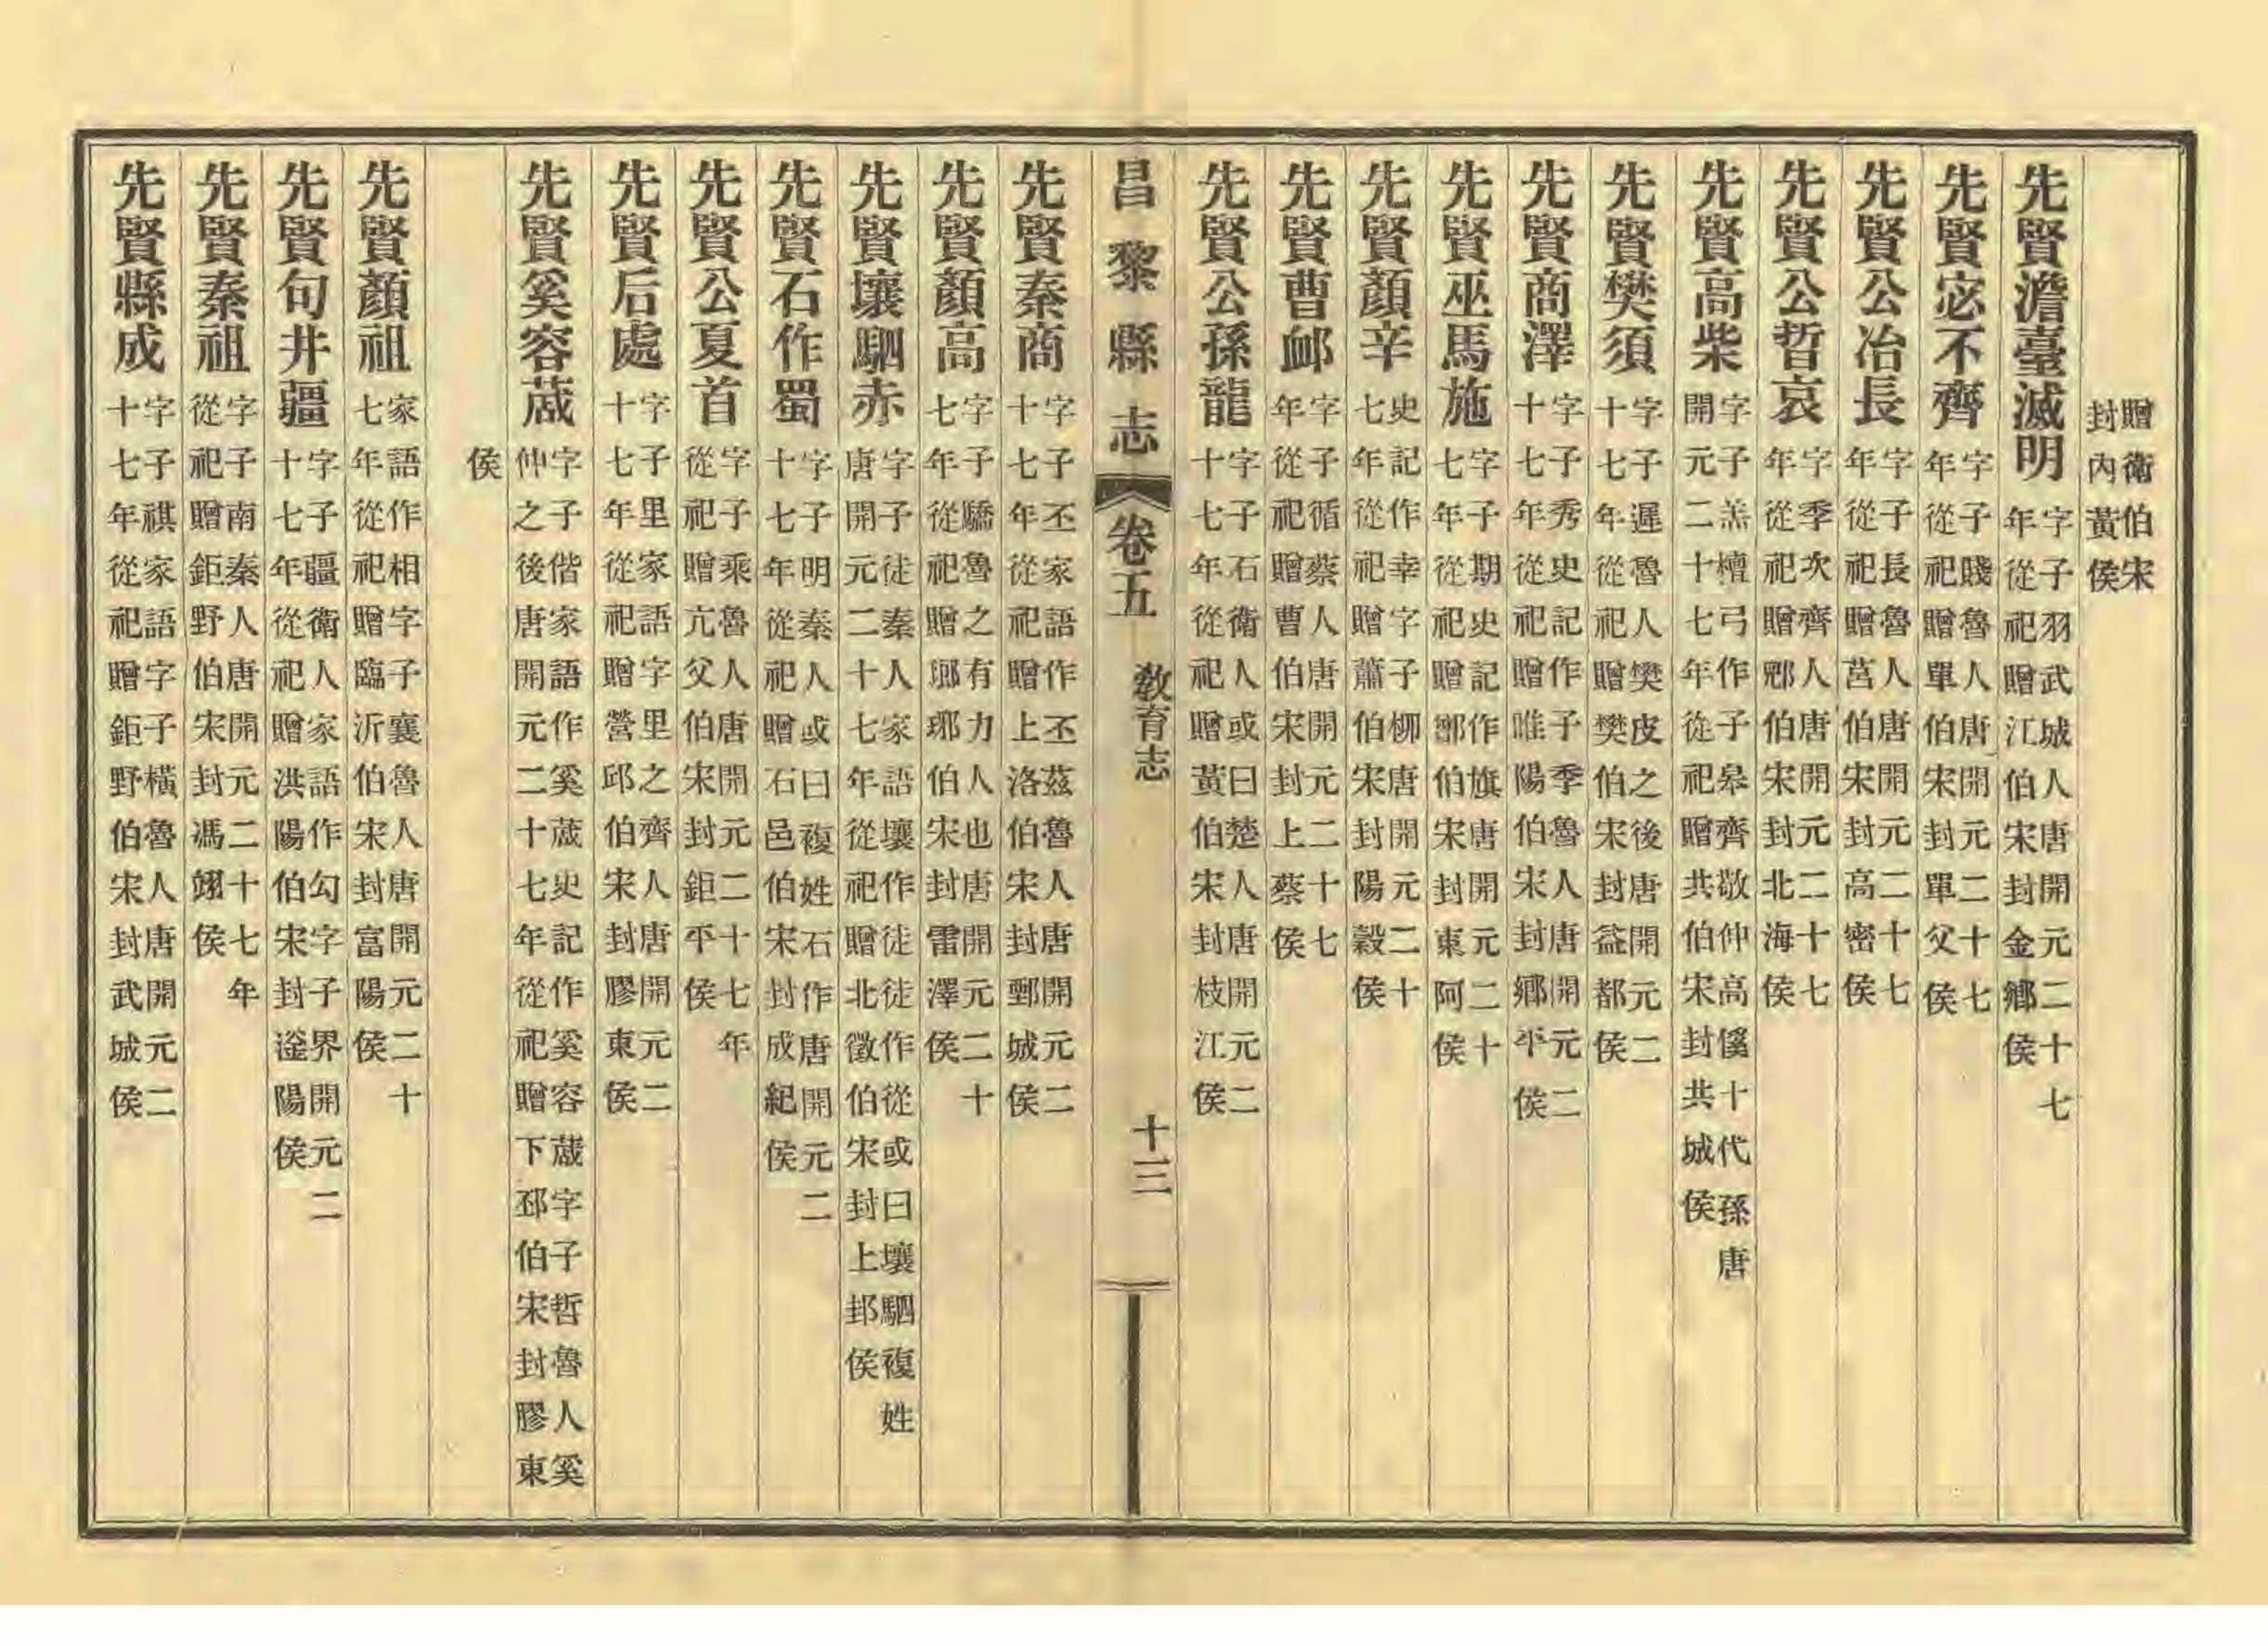 贈衛伯宋封內黃侯
先賢澹臺滅明字子羽武城人唐開元二十七年從祀贈江伯宋封金鄉侯
先賢宓不齊字子賤魯人唐開元二十七年從祀贈單伯宋封單父侯
先賢公冶長字子長魯人唐開元二十七年從祀贈莒伯宋封高密侯
先賢公晳哀字季次齊人唐開元二十七年從祀贈郳伯宋封北海侯
先賢高柴字子羔檀弓作子皋齊敬仲高傒十代孫唐開元二十七年從祀贈共伯宋封共城侯
先賢樊須字子遲魯人樊皮之後唐開元二十七年從祀贈樊伯宋封益都侯
先賢商澤字子秀史記作子季魯人唐開元二十七年從祀贈睢陽伯宋封鄉平侯
先賢巫馬施字子期史記作旗唐開元二十七年從祀贈鄫伯宋封東阿侯
先賢顏辛史記作幸字子柳唐開元二十七年從祀贈蕭伯宋封陽穀侯
先賢曹卹字子循蔡人唐開元二十七年從祀贈曹伯宋封上蔡侯
先賢公孫龍字子石衛人或曰楚人唐開元二十七年從祀贈黃伯宋封枝江侯
昌黎縣志 卷五 教育志 十三
先賢秦商字子丕家語作丕茲魯人唐開元二十七年從祀贈上洛伯宋封鄄城侯
先賢顏高字子驕魯之有力人也唐開元二十七年從祀贈瑯琊伯宋封雷澤侯
先賢壤駟赤字子徒秦人家語壤作徒徒作從或曰壤駟複姓唐開元二十七年從祀贈北徵伯宋封上邽侯
先賢石作蜀字子明秦人或曰複姓石作唐開元二十七年從祀贈石邑伯宋封成紀侯
先賢公夏首字子乘魯人唐開元二十七年從祀贈亢父伯宋封鉅平侯
先賢后處字子里家語字里之齊人唐開元二十七年從祀贈營邱伯宋封膠東侯
先賢奚容蒧字子偕家語作奚蒧史記作奚容蒧字子晳魯人奚仲之後唐開元二十七年從祀贈下邳伯宋封膠東
侯
先賢顏祖家語作相字子襄魯人唐開元二十七年從祀贈臨沂伯宋封富陽侯
先賢句井疆字子疆衛人家語作勾字子界開元二十七年從祀贈洪陽伯宋封滏陽侯
先賢秦祖字子南秦人唐開元二十七年從祀贈鉅野伯宋封馮翊侯
先賢縣成字子祺家語字子橫魯人唐開元二十七年從祀贈鉅野伯宋封武城侯